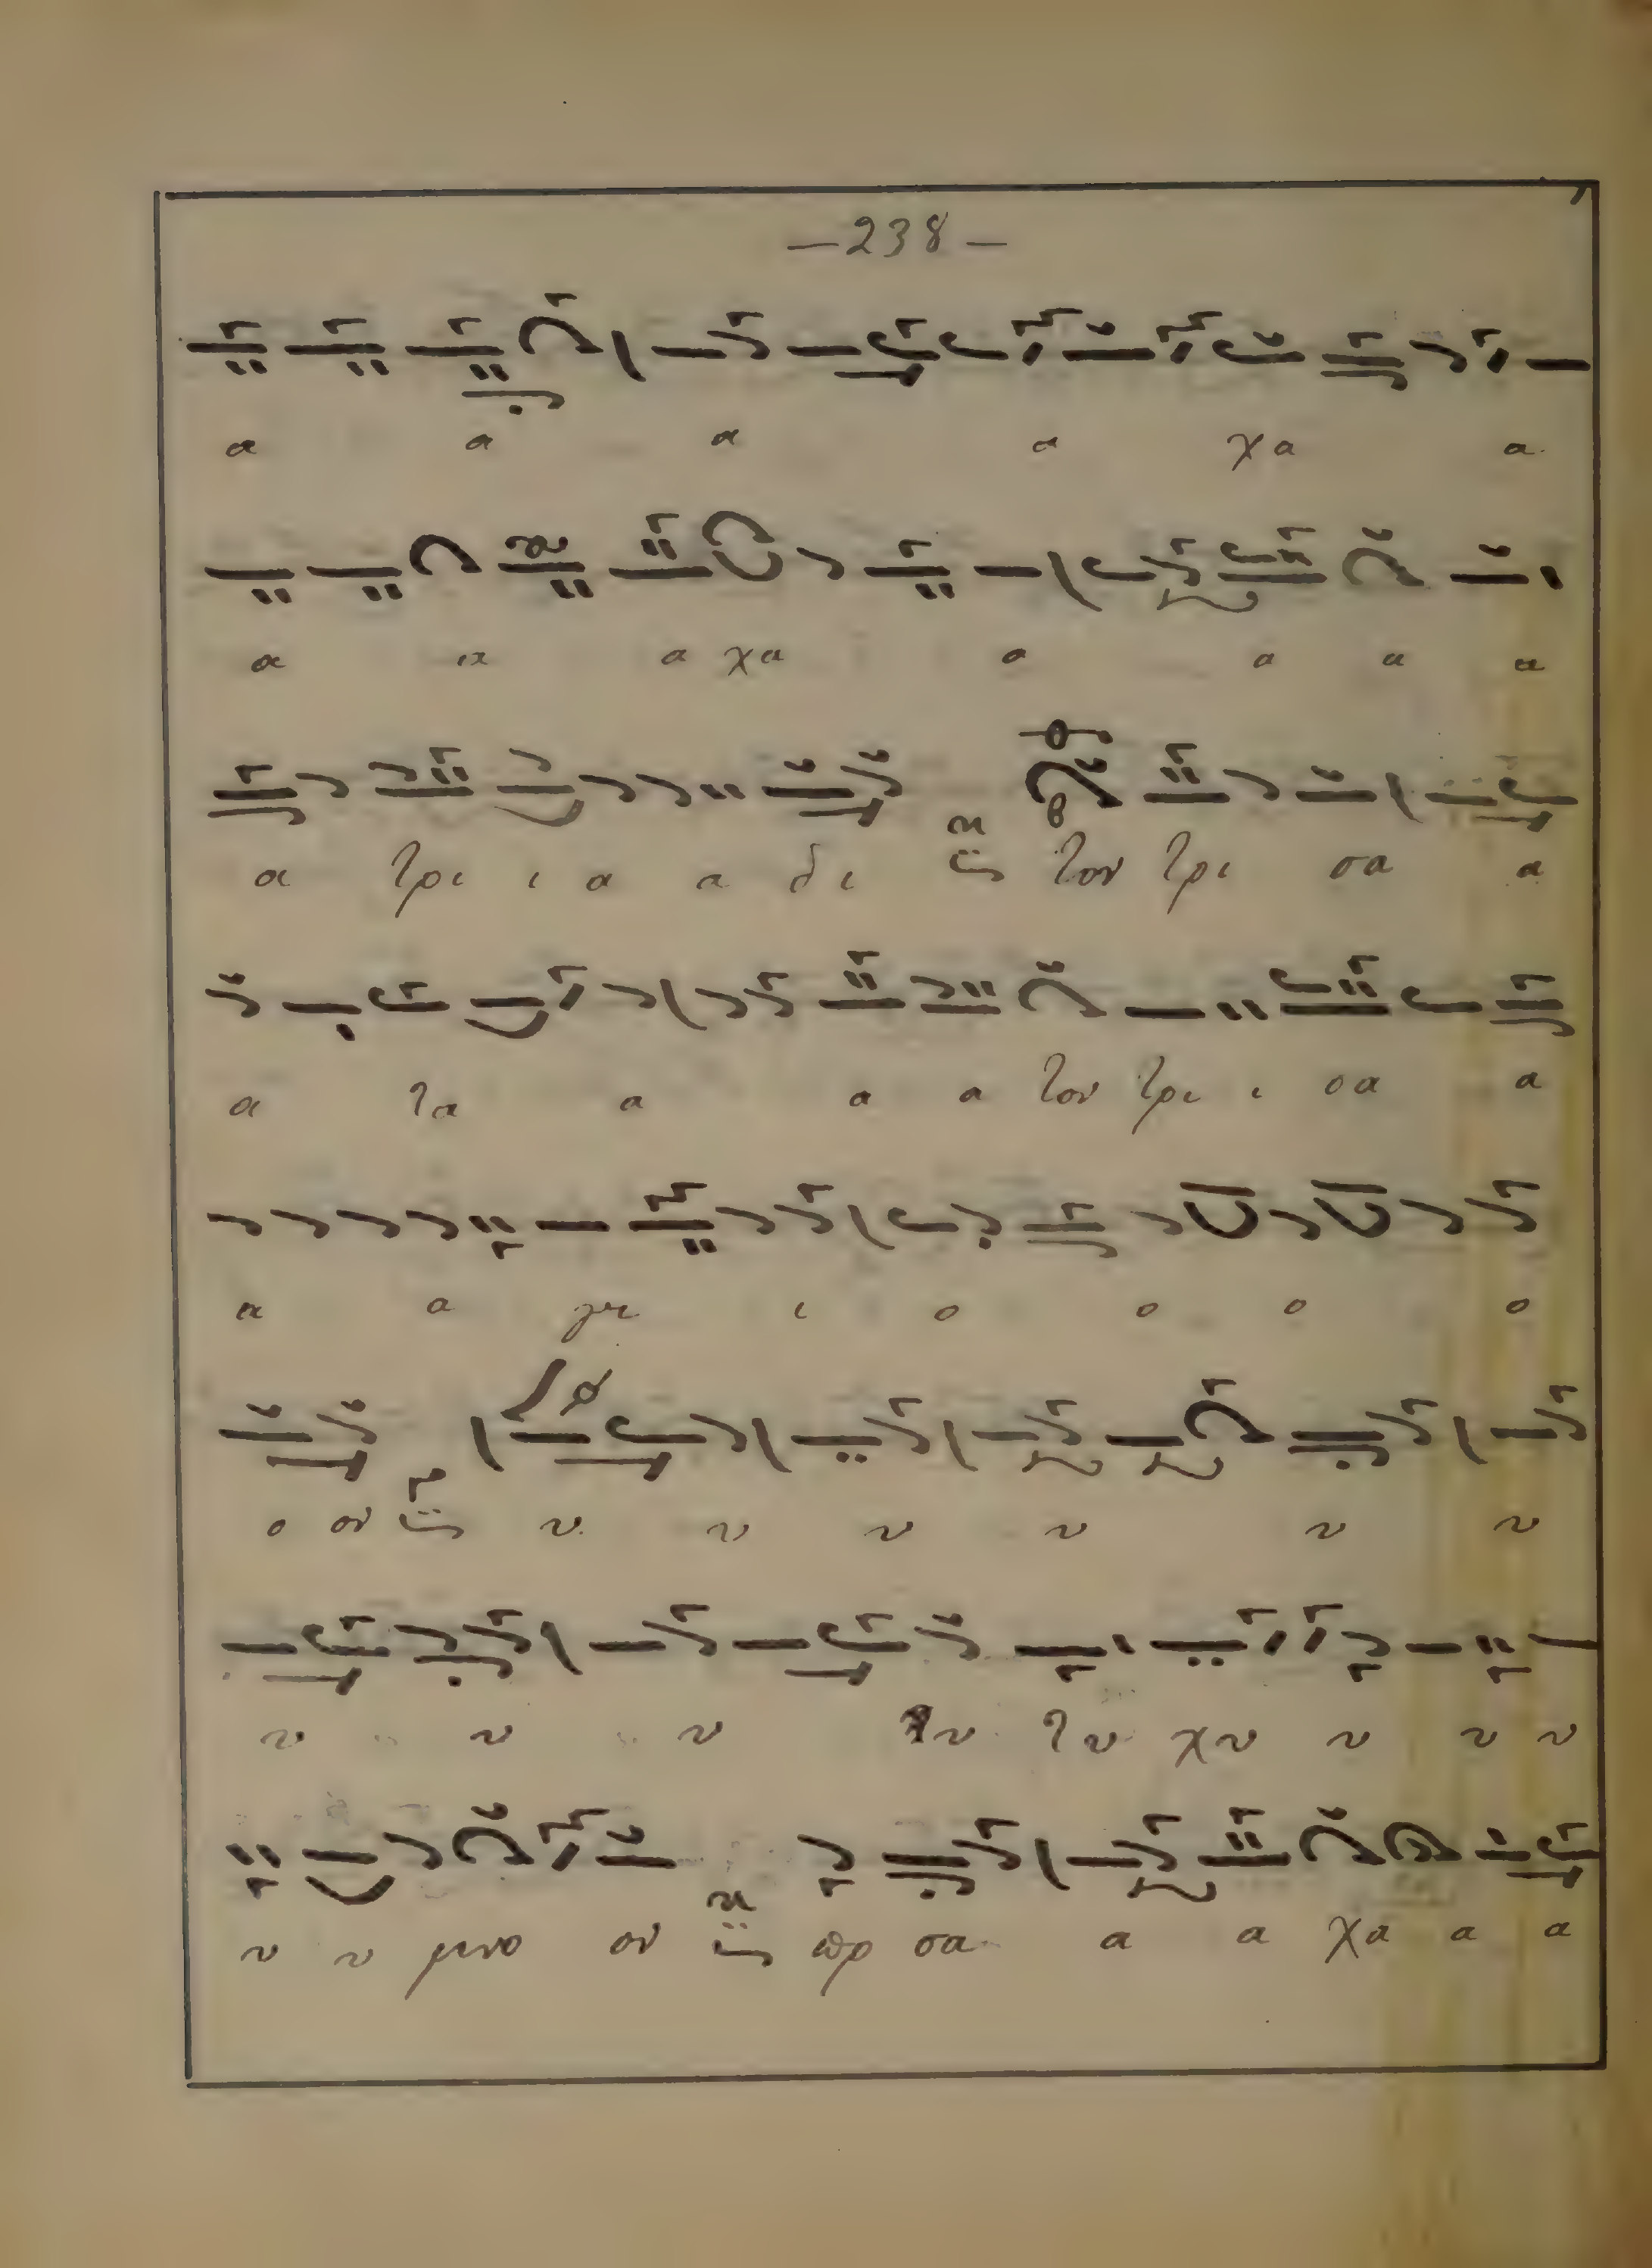 —238—
α α α α χα α
α α α χα α α α α
α τρι ι α α δι τον τρι σα α
α τα α α α τον τρι ι σα α
α α γι ι ο ο ο ο
ο ον υ υ υ υ υ υ
υ υ υ τυ χυ υ υ υ
υ υ μνο ον σα α α χα α α